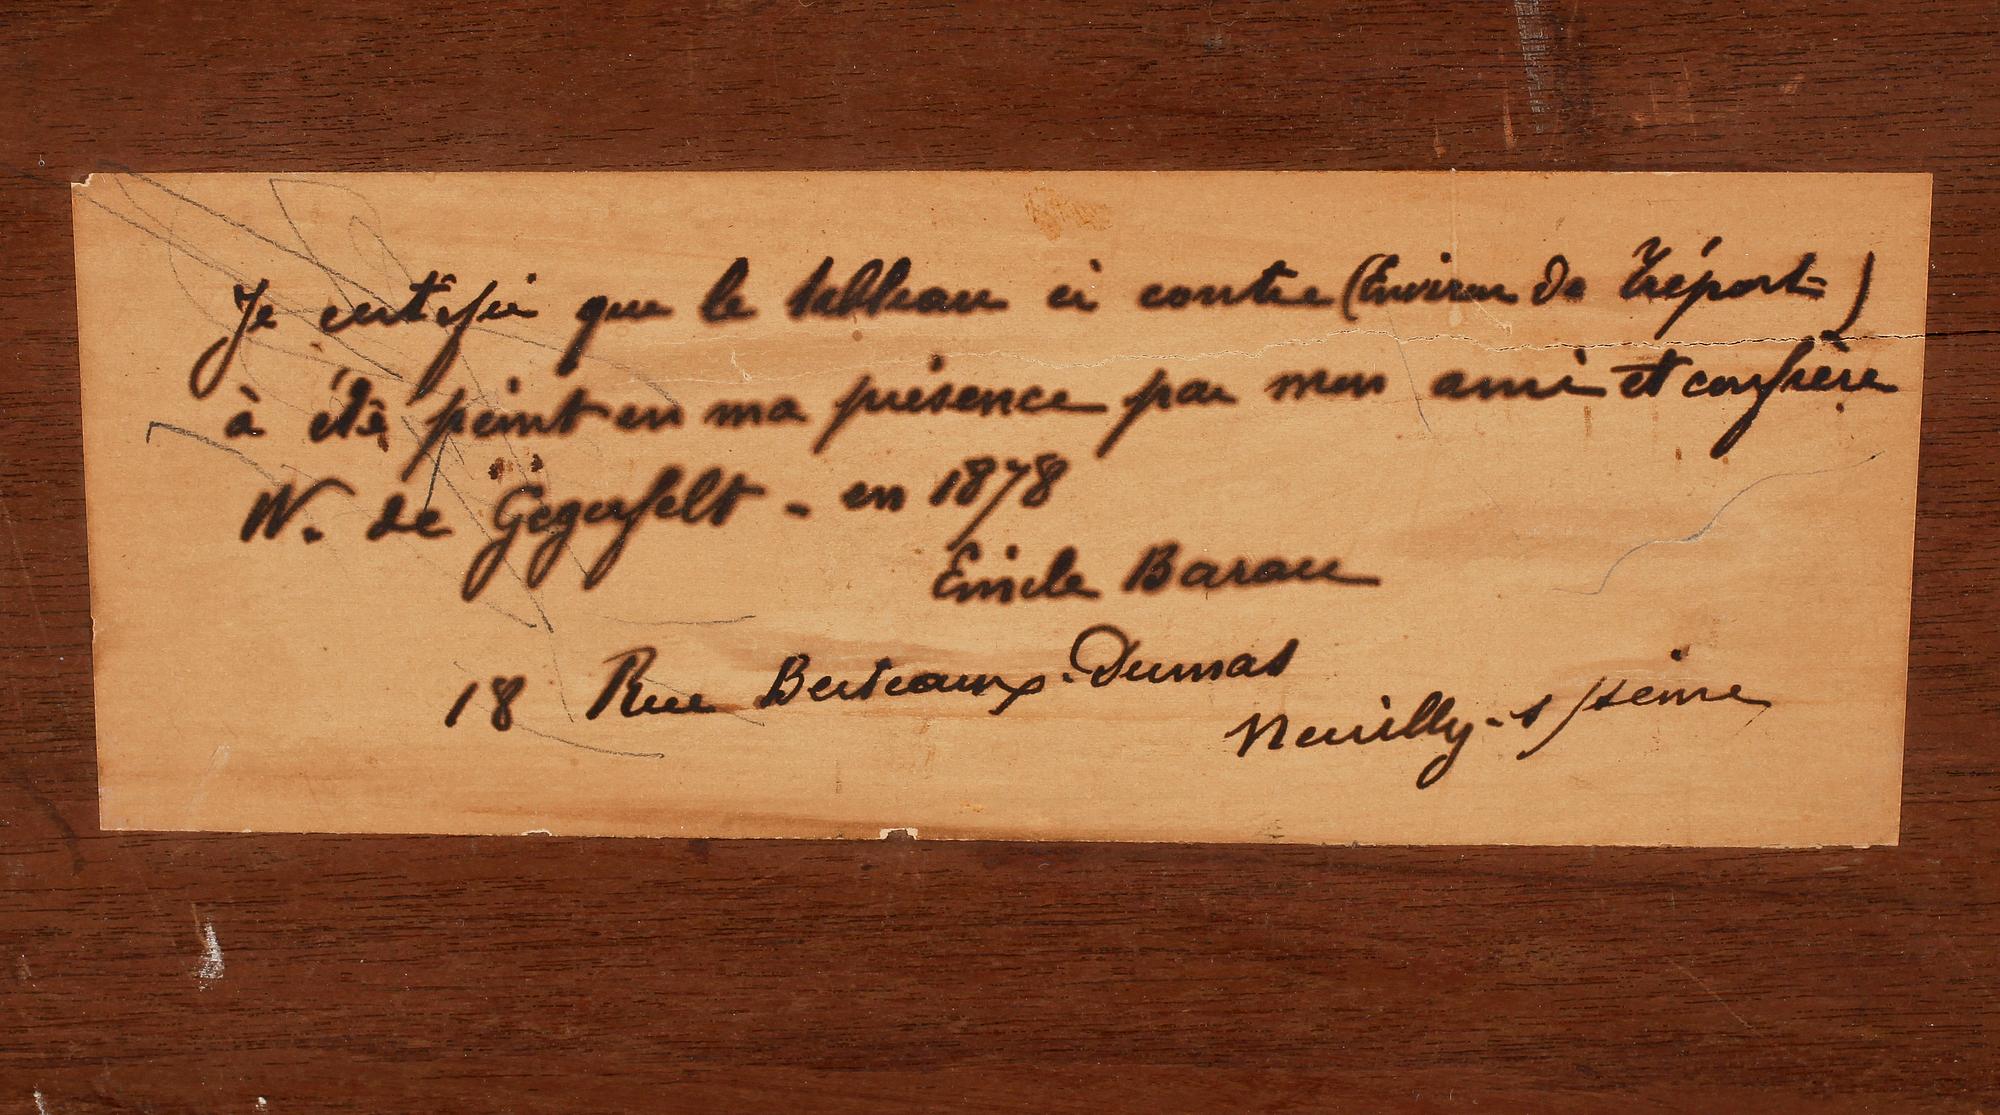 Je certifie que le tableau ci contre (Environ de Tréport)
à été peint en ma présence par mon ami et confrère
W. de Gegerfelt - en 1878
Emile Barau
18 Rue Berteaux-Dumas
Neuilly-s/seine